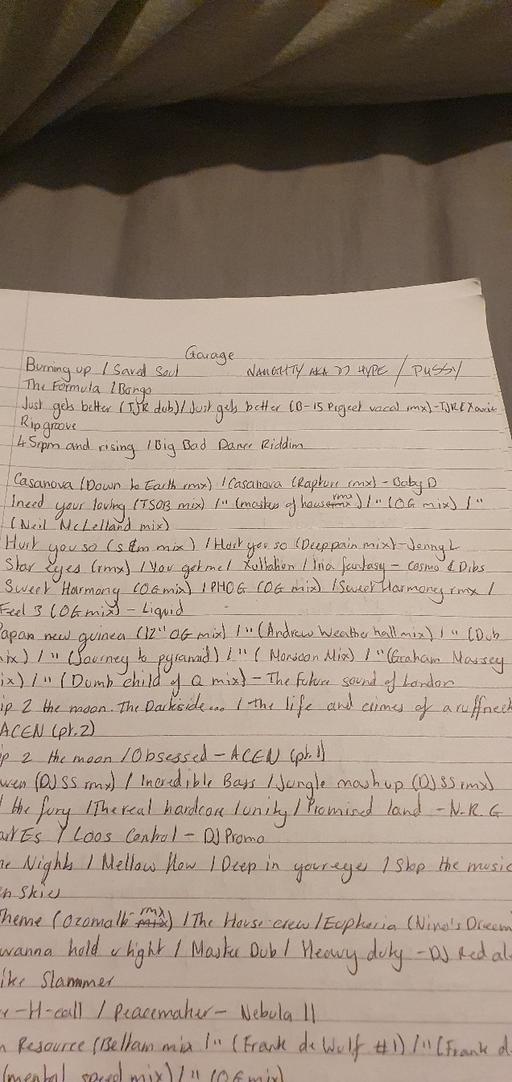 Garage
Burning up / Saved Soul NAUGHTY AKA 77 HYPE / PUSSY
The Formula / Bongo
Just gets better (TJR dub) / Just gets better (D-15 Project vocal rmx) - TJR
Ripgroove
45rpm and rising / Big Bad Dance Riddim
Casanova (Down to Earth rmx) / Casanova (Rapture rmx) - Baby D
I need your loving (TSOB mix) / " (masters of house rmx) / " (OG mix) / "
(Neil McLelland mix)
Hurt you so (s&m mix) / Hurt you so (Deeppain mix) - Jonny L
Star eyes (rmx) / You got me / Xultation / In a fantasy - Cosmo & Dibs
Sweet Harmony (OG mix) / PHOG (OG mix) / Sweet Harmony rmx /
Feel 3 (OG mix) - Liquid
Papan new guinea (12" OG mix) / " (Andrew Weatherhall mix) / " (Dub
ix) / " (Journey to pyramid) / " (Monsoon Mix) / " (Graham Massey
ix) / " (Dumb child of Q mix) - The future sound of London
ip 2 the moon. The Darkside... / the life and crimes of a ruffneck
ACEN (pt.2)
ip 2 the moon / Obsessed - ACEN (pt.1)
wer (DJ SS rmx) / Incredible Bass / Jungle mashup (DJ SS rmx)
/ the fury / The real hardcore / unity / Promised land - N.R.G
Es / Loos Control - DJ Promo
ne Nights / Mellow flow / Deep in your eyes / Stop the music
n Skies
Theme (Ozomatb rmx) / The House crew / Euphoria (Nino's Dream
wanna hold u tight / Master Dub / Heavy duty - DJ Red al
ike Slammer
r-H-call / Peacemaker - Nebula II
n Resource (Beltam mix / " (Frank de Wulf #1) / " (Frank d
(mental speed mix) / " (OG mix)